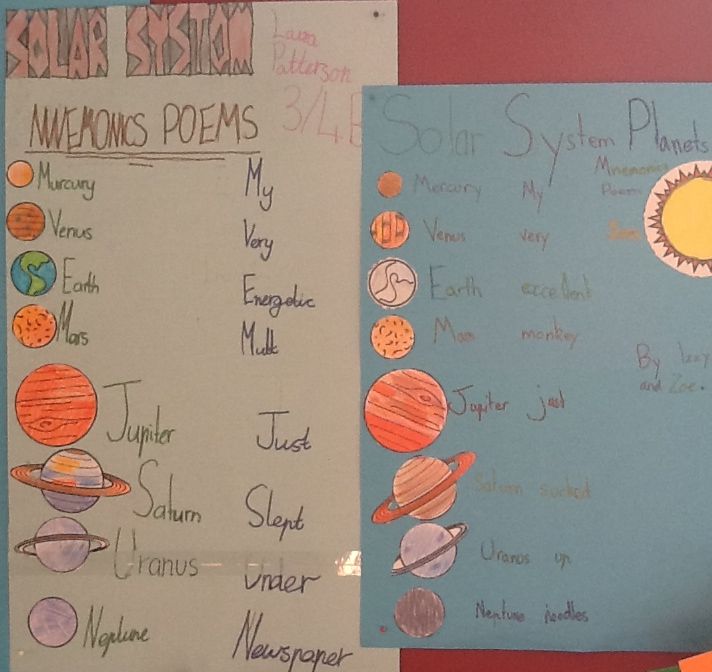 SOLAR SYSTOM
Laura
Patterson
3/4E
NNEMONICS POEMS
Murcury My
Venus Very
Earth Energetic
Mars Mutt
Jupiter Just
Saturn Slept
Uranus under
Neptune Newspaper
Solar System Planets
Mnemonics
Poem
Mercury My
Venus very
Earth excellent
Mars monkey
By Izzy
and Zoe.
Jupiter just
Saturn sucked
Uranus up
Neptune noodles